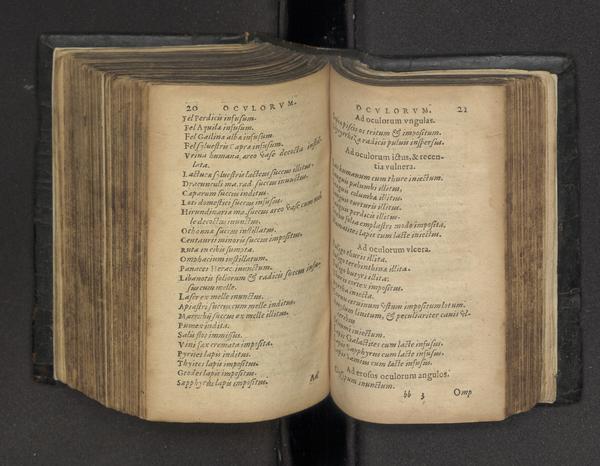 20 OCVLORVM.
Fel Perdicis infusum.
Fel Aquilæ infusum.
Fel Gallinæ albæ infusum.
Fel syluestris Capræ infusum.
Vrina humana, æreo vase decocta instil-
lata.
Lactucæ syluestris lacteus succus illitus.
Dracunculi ma. rad. succus inunctus.
Caparum succus inditus.
Loti domesticæ succus infusus.
Hirundinaria ma. succus æreo vase cum mel-
le decoctus inunctus.
Othonnæ succus instillatus.
Centaurij minoris succus impositus.
Ruta in cibis sumpta.
Omphacium instillatum.
Panaces Herac. inunctum.
Libanotis foliorum & radicis succus infu-
sus cum melle.
Laser ex melle inunctus.
Apiastri succus cum melle inditus.
Marrubij succus ex melle illitus.
Pumex indita.
Salis flos immissus.
Vini fæx cremata imposita.
Pyrites lapis inditus.
Thyites lapis impositus.
Geodes lapis impositus.
Sapphyrus lapis impositus.
OCVLORVM. 21
Ad oculorum vngulas.
piscis os tritum & impositum.
radicis puluis inspersus.
Ad oculorum ictus, & recen-
tia vulnera.
humanum cum thure iniectum.
palumbi illitus.
columbæ illitus.
turturis illitus.
perdicis illitus.
salsa emplastri modo imposita.
lapis cum lacte iniectus.
Ad oculorum vlcera.
thuris illita.
terebinthina illita.
butyri illita.
cortex impositus.
iniecta.
ceruinum vstum impositum lotum.
linitum, & peculiariter cauis vl-
iniectum.
Galactites cum lacte infusus.
Sapphyrus cum lacte infusus.
Samius cum lacte infusus.
Ad erosos oculorum angulos.
inunctum.
bb 3 Omp